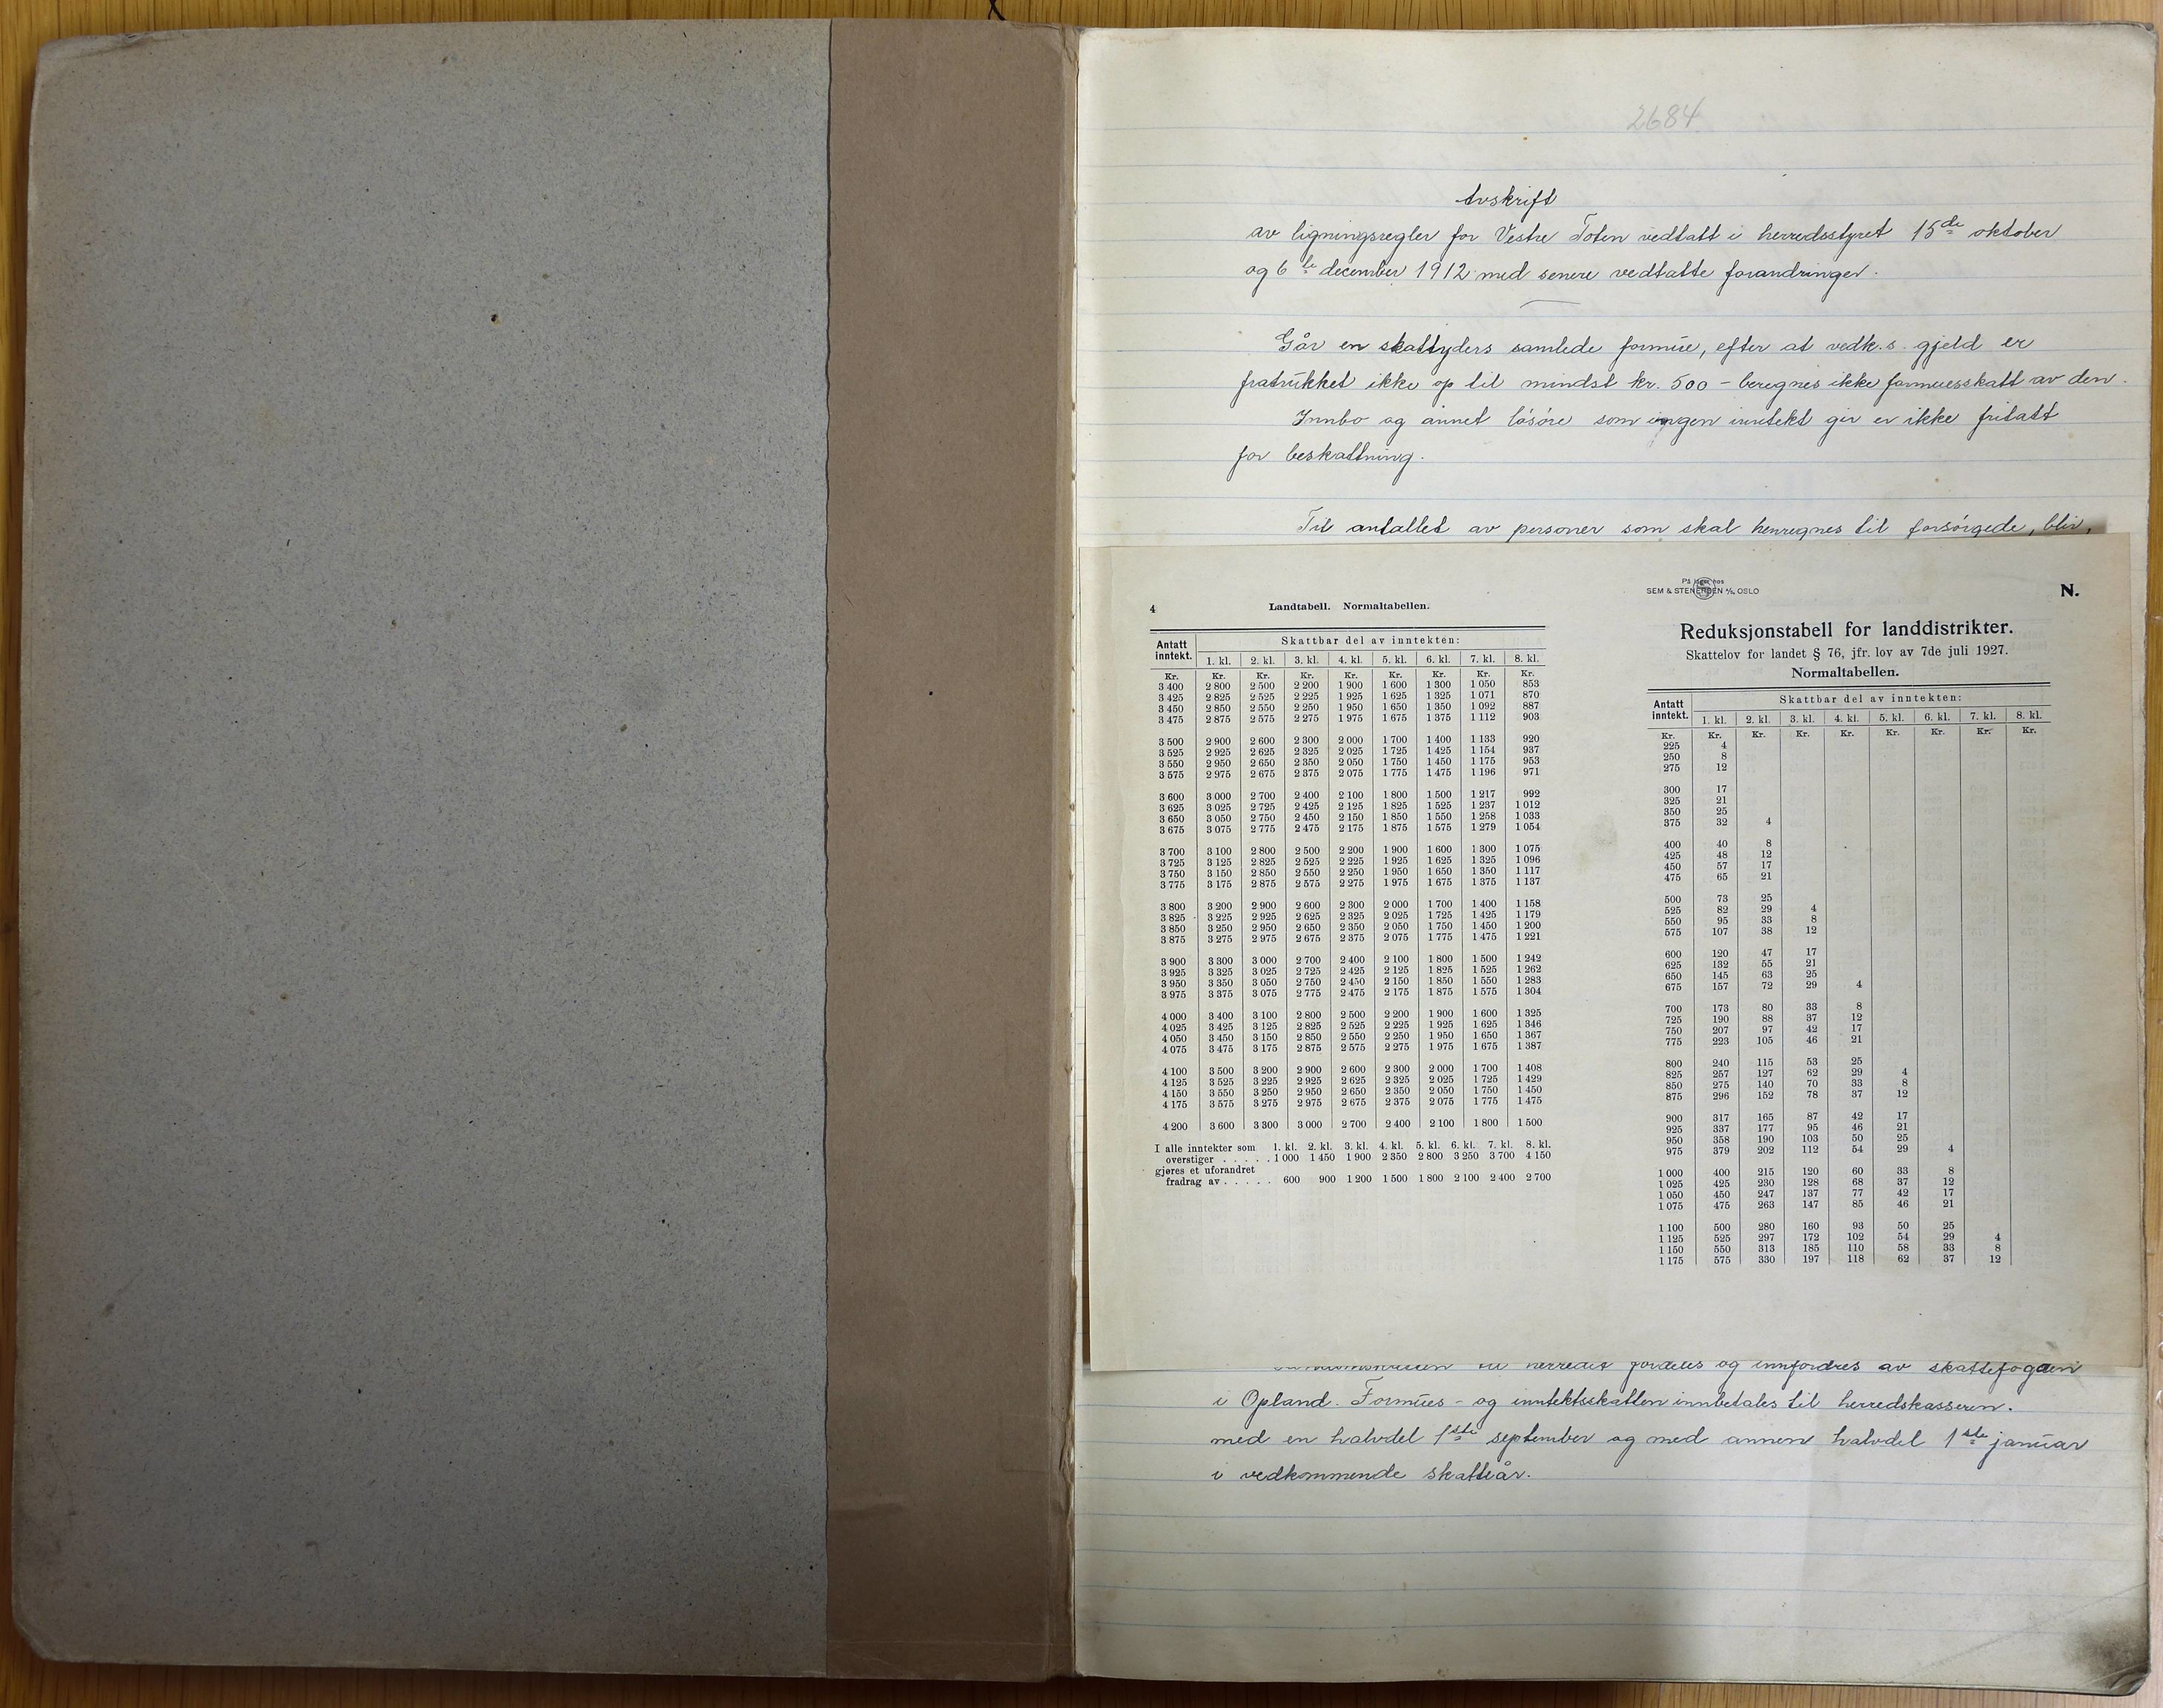 2684
Avskrift
av ligningsregler for Vestre Toten vedtatt i herredsstyret 15de oktober
og 6te december 1912 med senere vedtatte forandringer.
Går en skattyders samlede formue, efter at vedk.s. gjeld er
fratrukket ikke op til mindst kr. 500 – beregnes ikke formuesskatt av den.
Innbo og annet løsøre som ingen inntekt gir er ikke fritatt
for beskattning.
Til antallet av personer som skal henregnes til forsørgede, blir,
4
Landtabell. Normaltabellen.
Antatt inntekt. Skattbar del av inntekten:
1. kl. 2. kl. 3. kl. 4. kl. 5. kl. 6. kl. 7. kl. 8. kl.
Kr. Kr. Kr. Kr. Kr. Kr. Kr. Kr. Kr.
3 400 2 800 2 500 2 200 1 900 1 600 1 300 1 050 853
3 425 2 825 2 525 2 225 1 925 1 625 1 325 1 071 870
3 450 2 850 2 550 2 250 1 950 1 650 1 350 1 092 887
3 475 2 875 2 575 2 275 1 975 1 675 1 375 1 112 903
3 500 2 900 2 600 2 300 2 000 1 700 1 400 1 133 920
3 525 2 925 2 625 2 325 2 025 1 725 1 425 1 154 937
3 550 2 950 2 650 2 350 2 050 1 750 1 450 1 175 953
3 575 2 975 2 675 2 375 2 075 1 775 1 475 1 196 971
3 600 3 000 2 700 2 400 2 100 1 800 1 500 1 217 992
3 625 3 025 2 725 2 425 2 125 1 825 1 525 1 237 1 012
3 650 3 050 2 750 2 450 2 150 1 850 1 550 1 258 1 033
3 675 3 075 2 775 2 475 2 175 1 875 1 575 1 279 1 054
3 700 3 100 2 800 2 500 2 200 1 900 1 600 1 300 1 075
3 725 3 125 2 825 2 525 2 225 1 925 1 625 1 325 1 096
3 750 3 150 2 850 2 550 2 250 1 950 1 650 1 350 1 117
3 775 3 175 2 875 2 575 2 275 1 975 1 675 1 375 1 137
3 800 3 200 2 900 2 600 2 300 2 000 1 700 1 400 1 158
3 825 3 225 2 925 2 625 2 325 2 025 1 725 1 425 1 179
3 850 3 250 2 950 2 650 2 350 2 050 1 750 1 450 1 200
3 875 3 275 2 975 2 675 2 375 2 075 1 775 1 475 1 221
3 900 3 300 3 000 2 700 2 400 2 100 1 800 1 500 1 242
3 925 3 325 3 025 2 725 2 425 2 125 1 825 1 525 1 262
3 950 3 350 3 050 2 750 2 450 2 150 1 850 1 550 1 283
3 975 3 375 3 075 2 775 2 475 2 175 1 875 1 575 1 304
4 000 3 400 3 100 2 800 2 500 2 200 1 900 1 600 1 325
4 025 3 425 3 125 2 825 2 525 2 225 1 925 1 625 1 346
4 050 3 450 3 150 2 850 2 550 2 250 1 950 1 650 1 367
4 075 3 475 3 175 2 875 2 575 2 275 1 975 1 675 1 387
4 100 3 500 3 200 2 900 2 600 2 300 2 000 1 700 1 408
4 125 3 525 3 225 2 925 2 625 2 325 2 025 1 725 1 429
4 150 3 550 3 250 2 950 2 650 2 350 2 050 1 750 1 450
4 175 3 575 3 275 2 975 2 675 2 375 2 075 1 775 1 475
4 200 3 600 3 300 3 000 2 700 2 400 2 100 1 800 1 500
I alle inntekter som 1. kl. 2. kl. 3. kl. 4. kl. 5. kl. 6. kl. 7. kl. 8. kl.
overstiger . . . . . 1 000 1 450 1 900 2 350 2 800 3 250 3 700 4 150
gjøres et uforandret
fradrag av . . . . . 600 900 1 200 1 500 1 800 2 100 2 400 2 700
På lager hos
SEM & STENERSEN A/S, OSLO
N.
Reduksjonstabell for landdistrikter.
Skattelov for landet § 76, jfr. lov av 7de juli 1927.
Normaltabellen.
Antatt inntekt. Skattbar del av inntekten:
1. kl. 2. kl. 3. kl. 4. kl. 5. kl. 6. kl. 7. kl. 8. kl.
Kr. Kr. Kr. Kr. Kr. Kr. Kr. Kr. Kr.
225 4
250 8
275 12
300 17
325 21
350 25
375 32 4
400 40 8
425 48 12
450 57 17
475 65 21
500 73 25
525 82 29 4
550 95 33 8
575 107 38 12
600 120 47 17
625 132 55 21
650 145 63 25
675 157 72 29 4
700 173 80 33 8
725 190 88 37 12
750 207 97 42 17
775 223 105 46 21
800 240 115 53 25
825 257 127 62 29 4
850 275 140 70 33 8
875 296 152 78 37 12
900 317 165 87 42 17
925 337 177 95 46 21
950 358 190 103 50 25
975 379 202 112 54 29 4
1 000 400 215 120 60 33 8
1 025 425 230 128 68 37 12
1 050 450 247 137 77 42 17
1 075 475 263 147 85 46 21
1 100 500 280 160 93 50 25
1 125 525 297 172 102 54 29 4
1 150 550 313 185 110 58 33 8
1 175 575 330 197 118 62 37 12
til herredet fordeles og innfordres av skattefogden
i Opland. Formues- og inntektsskatten innbetales til herredskasseren.
med en halvdel 1ste september og med annen halvdel 1ste januar
i vedkommende skatteår.